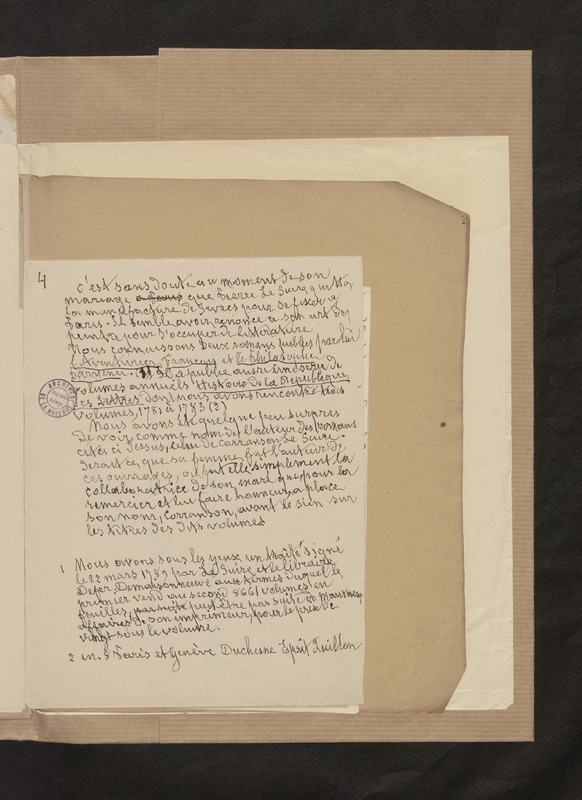 4
c'est sans doute au moment de son
mariage a paris que Pierre Le Suire quitta
la manufacture de Sevres pour se fixer à
Paris. Il semble avoir renoncé a son art de
peintre pour s'occuper de littérature
Nous connaissons deux romans publiés par lui
l'Aventurier Français et le philosophe
parvenu. (1) Il a publié aussi une série de
volumes annuels Histoire de la République
des Lettres dont nous avons rencontré trois
volumes, 1781 à 1783 (2)
Nous avons été quelque peu surpris
de voir comme nom de l'auteur des romans
cités ci dessus, celui de Corranson Le Suire.
Serait ce que sa femme fut l'auteur de
ces ouvrages, ou fut elle simplement la
collaboratrice de son mari qui pour la
remercier et lui faire honneur, a placé
son nom, Corranson, avant le sien sur
les titres des dits volumes
1 Nous avons sous les yeux un traité signé
le 22 mars 1789 par Le Suire et le libraire
Defer Demaisonneuve aux termes duquel le
premier vend au second 866 volumes en
feuilles, peut être par suite de mauvaises
affaires de son imprimeur, pour le prix de
vingt sous le volume.
2 in. 8 Paris et Genève Duchesne Esprit Quillon